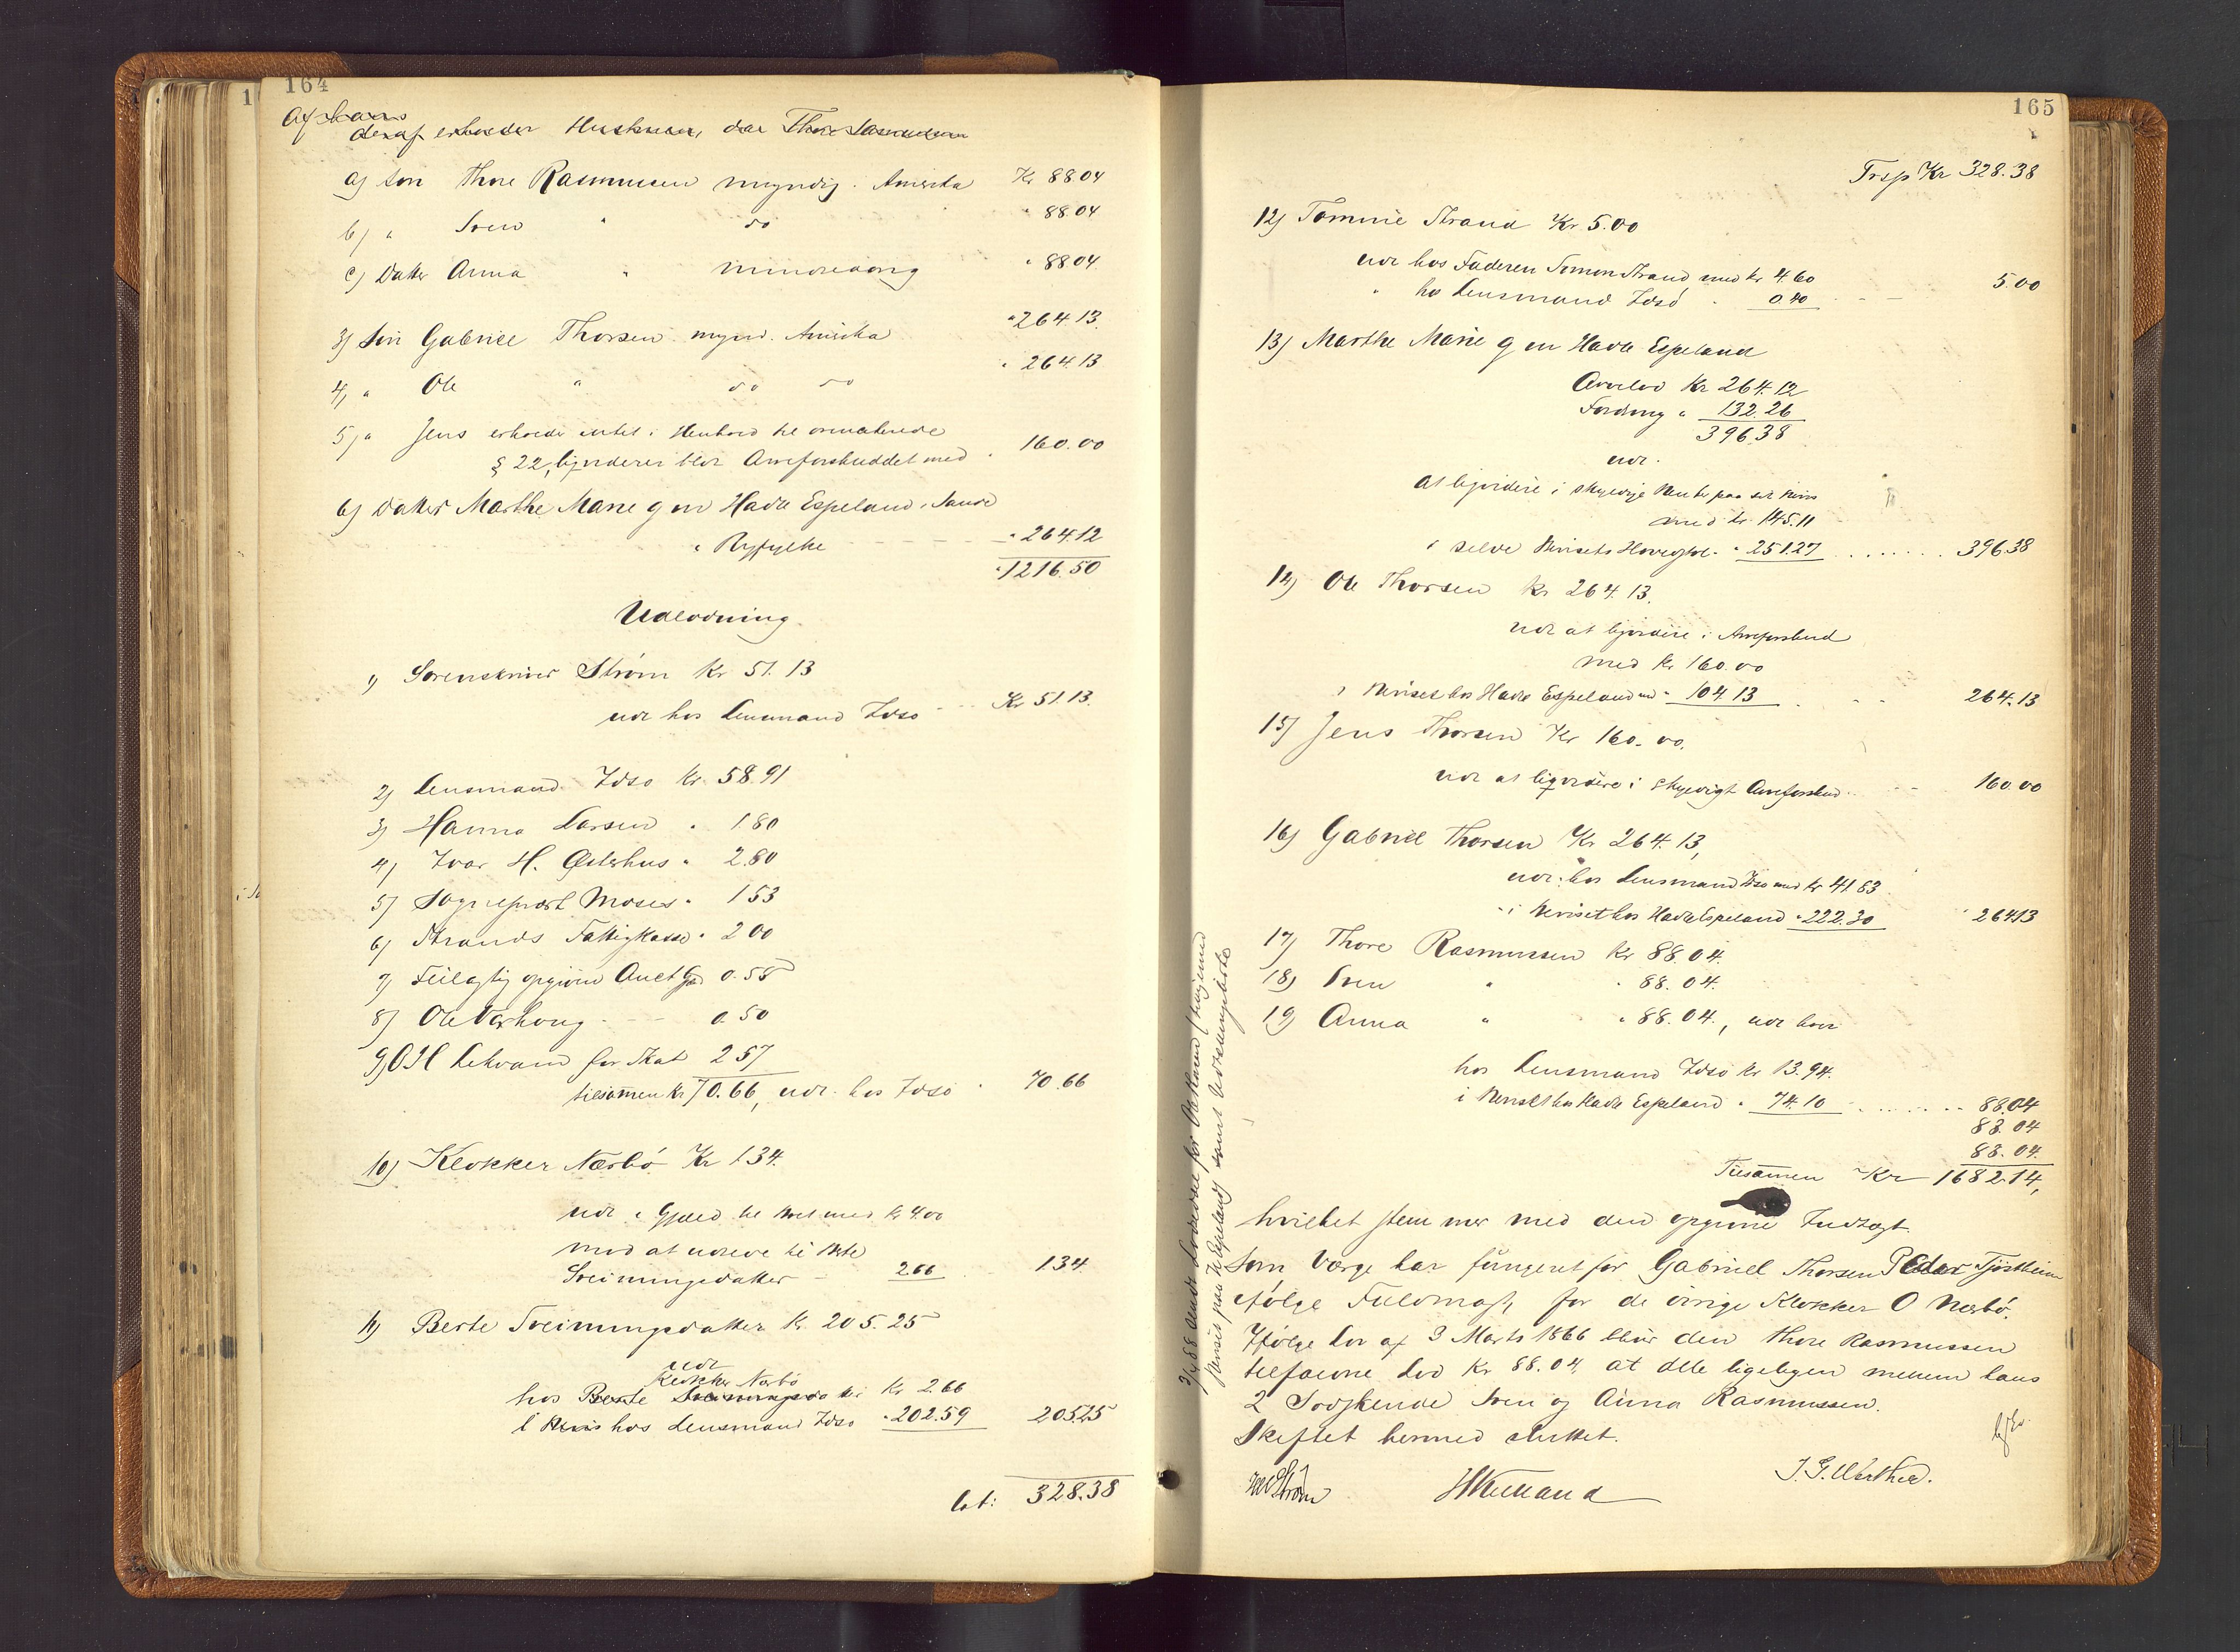 164
Af hans
deraf erholder Huskuen, da Thore Rasmussen
a) Søn Thore Rasmussen myndig. Amerika Kr 88.04
b) " Sven " do " 88.04
c) Datter Anna " mindreaarig " 88.04
3) Søn Gabriel Thorsen mynd. Amerika " 264.13.
4) " Ole " do do " 264.13
5) " Jens erholder intet i Henhold til ovennævnte
§ 22, ligviderer blot Arveforskuddet med " 160.00
6) Datter Marthe Marie g m Hadle Espeland i Sand
i Ryfylke " 264.12
" 1216.50
Udlodning.
1) Sorenskriver Strøm Kr 51.13
udl hos Lensmand Idsø Kr 51.13.
2) Lensmand Idsø Kr. 58.91
3) Hanna Larsen " 1.80
4) Ivar H. Østerhus " 2.80
5) Sogneprest Moses " 1.53
6) Strands Fattigkasse " 2.00
7) Feilagtig opgiven Auct Gjæld 0.55
8) Ole Varhoug 0.50
9) O H Lekvam for Skat 2.57
tilsammen Kr 70.66, udl. hos Idsø " 70.66
10) Klokker Nærbø Kr 1.34.
udl i Gjæld til Boet med Kr 4.00
mod at udrede til Berte
Sveinungsdatter 2.66 1.34
11) Berte Sveinungsdatter Kr. 205.25
udl
Klokker Nærbø
hos Berte Sveinungsda til Kr 2.66
hos Lensmand Idsø " 202.59 205.25
Lat: 328.38
165
Trsp Kr 328.38
12) Tommine Strand Kr. 5.00
udl hos Faderen Simon Strand med Kr 4.60
" hos Lensmand Idsø " 0.40 5.00
13) Marthe Marie g m Hadle Espeland
Arvelod Kr 264.12
Fordring " 132.26
396.38
udl.
at ligvidere i skyldige Renter paa sit Bevis
med Kr. 145.11
i selve Bevisets Hovedstol " 251.27 396.38
14) Ole Thorsen Kr 264.13.
udl at ligvidere i Arveforskud
med Kr 160.00
i Beviset hos Hadle Espeland med " 104.13 264.13
15) Jens Thorsen Kr 160.00.
udl at ligvidere i skyldigt Arveforskud 160.00
16) Gabriel Thorsen Kr 264.13,
udl. hos Lensmand Idsø med Kr 41.83
" i Beviset hos Hadle Espeland " 222.30 264.13
17) Thore Rasmussen Kr 88.04.
18) Sven " " 88.04.
19) Anna " " 88.04., udl hver
hos Lensmand Idsø Kr 13.94.
i Beviset hos Hadle Espeland " 74.10 88.04
88.04
88.04.
Tilsammen Kr 1682.14,
hvilket stemmer med den opgivne Indtægt.
Som Værge har fungeret for Gabriel Thorsen Peder Tjøstheim
ifølge Fuldmagt, for de øvrige Klokker O Nærbø.
Ifølge Lov af 3 Marts 1866 bliver den Thore Rasmussen
tilfaldne Lod Kr 88.04 at dele ligeligen mellem hans
2 Sødskende Sven og Anna Rasmussen.
Skiftet hermed sluttet.
Strøm HKielland J. G. Werther.